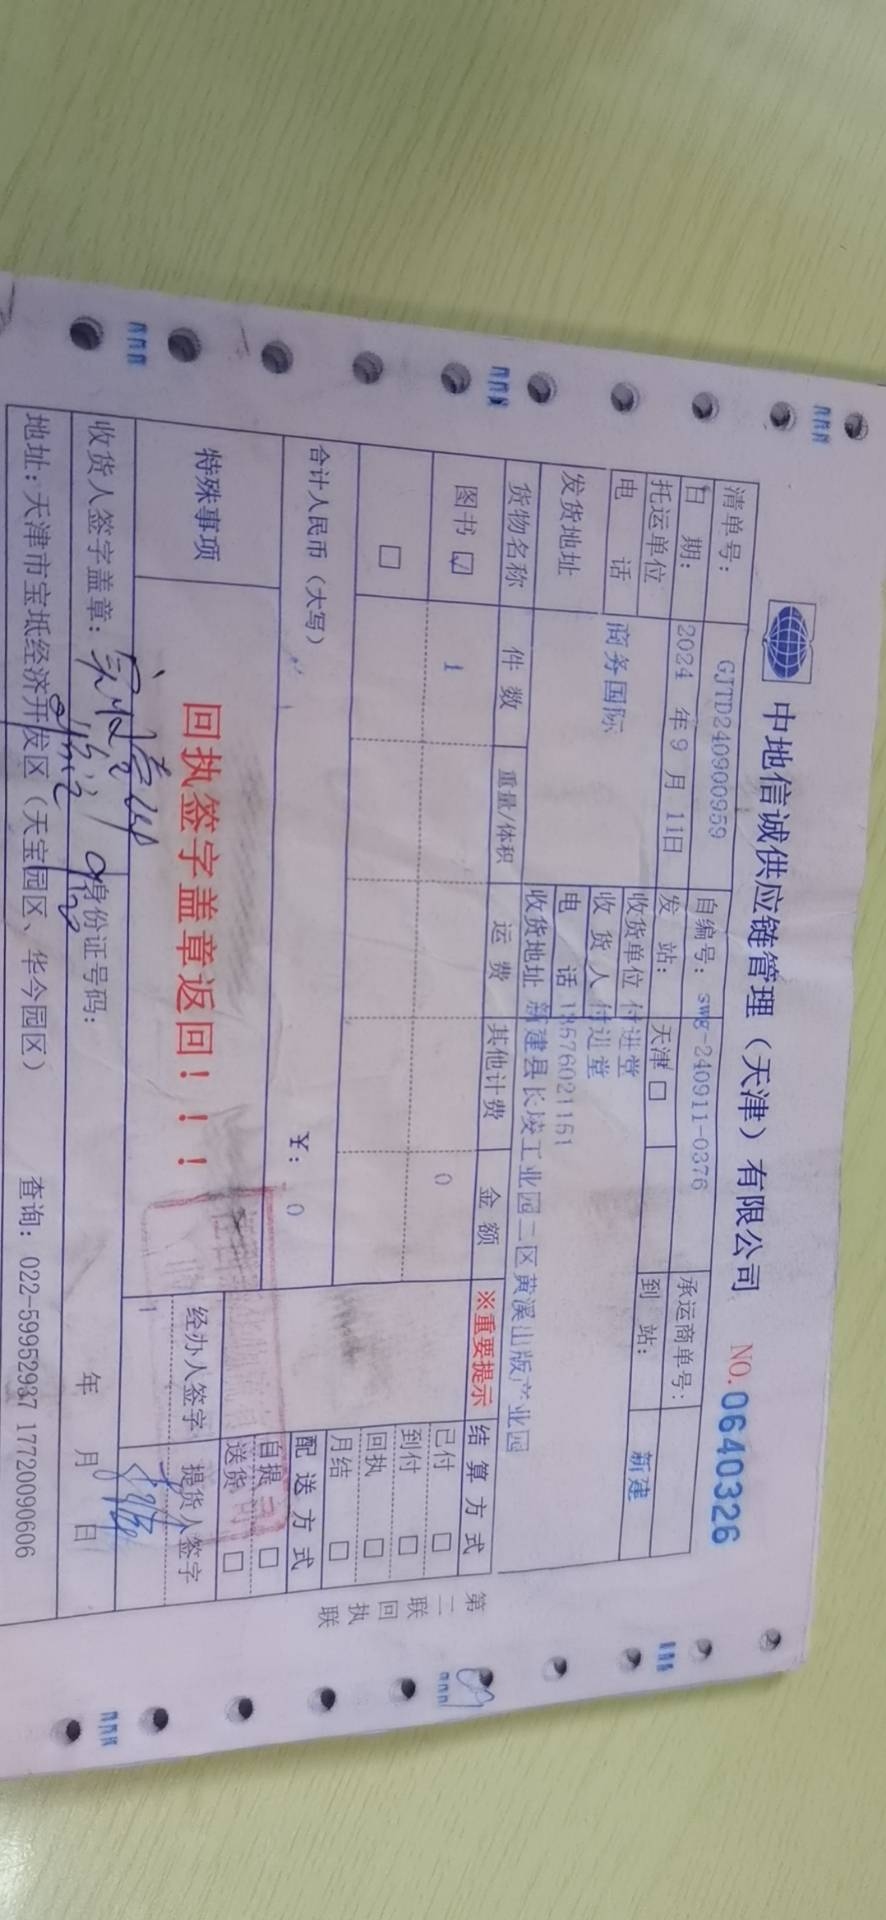 中地信诚供应链管理（天津）有限公司 NO.0640326
清单号： GJTD240900959 自编号： swg-240911-0376 承运商单号：
日 期： 2024 年 9 月 11日 发 站： 天津 □ 到 站： 新建
托运单位 商务国际 收货单位 付进堂
电 话 收 货 人 付进堂
发货地址 电 话 13576021151
收货地址 新建县长堎工业园二区黄溪出版产业园
货物名称 件 数 重量/体积 运 费 其他计费 金 额 ※重要提示 结 算 方 式
图书 ☑ 1 0 已付 □
□ 到付 □
回执 □
月结 □
合计人民币（大写） ￥： 0 配 送 方 式
自提 □
送货 □
特殊事项 回执签字盖章返回！！！ 经办人签字 提货人签字
1
收货人签字盖章： 身份证号码： 年 月 日
地址：天津市宝坻经济开发区（天宝园区、华今园区） 查询：022-59952937 17720090606
第二联 回执联